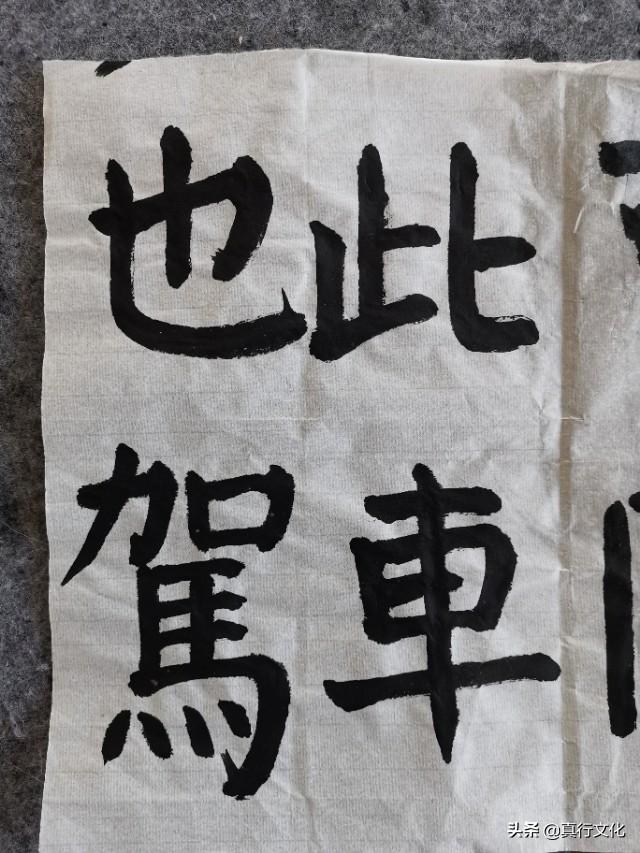 此車
也駕
头条 @真行文化